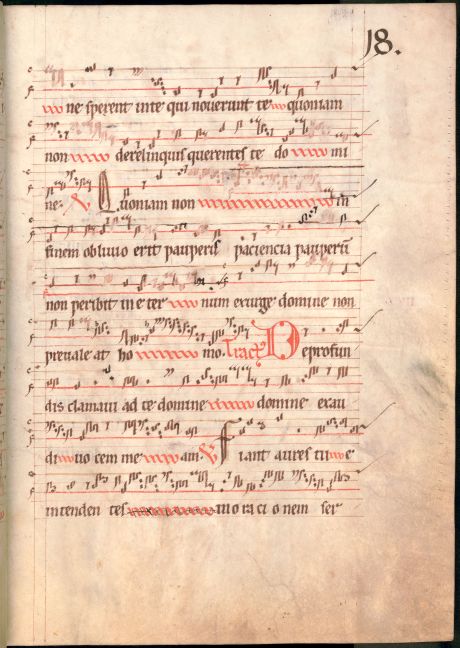 18.
ne sperent in te qui noverunt te quoniam
non derelinquis querentes te do mi
ne. V Quoniam non in
finem oblivio erit pauperis paciencia pauperū
non peribit in e ter num exurge domine non
prevale at ho mo. Tract De profun
dis clamavi ad te domine domine exau
di vo cem me am V Fiant aures tu e
intenden tes in o ra ci o nem ser